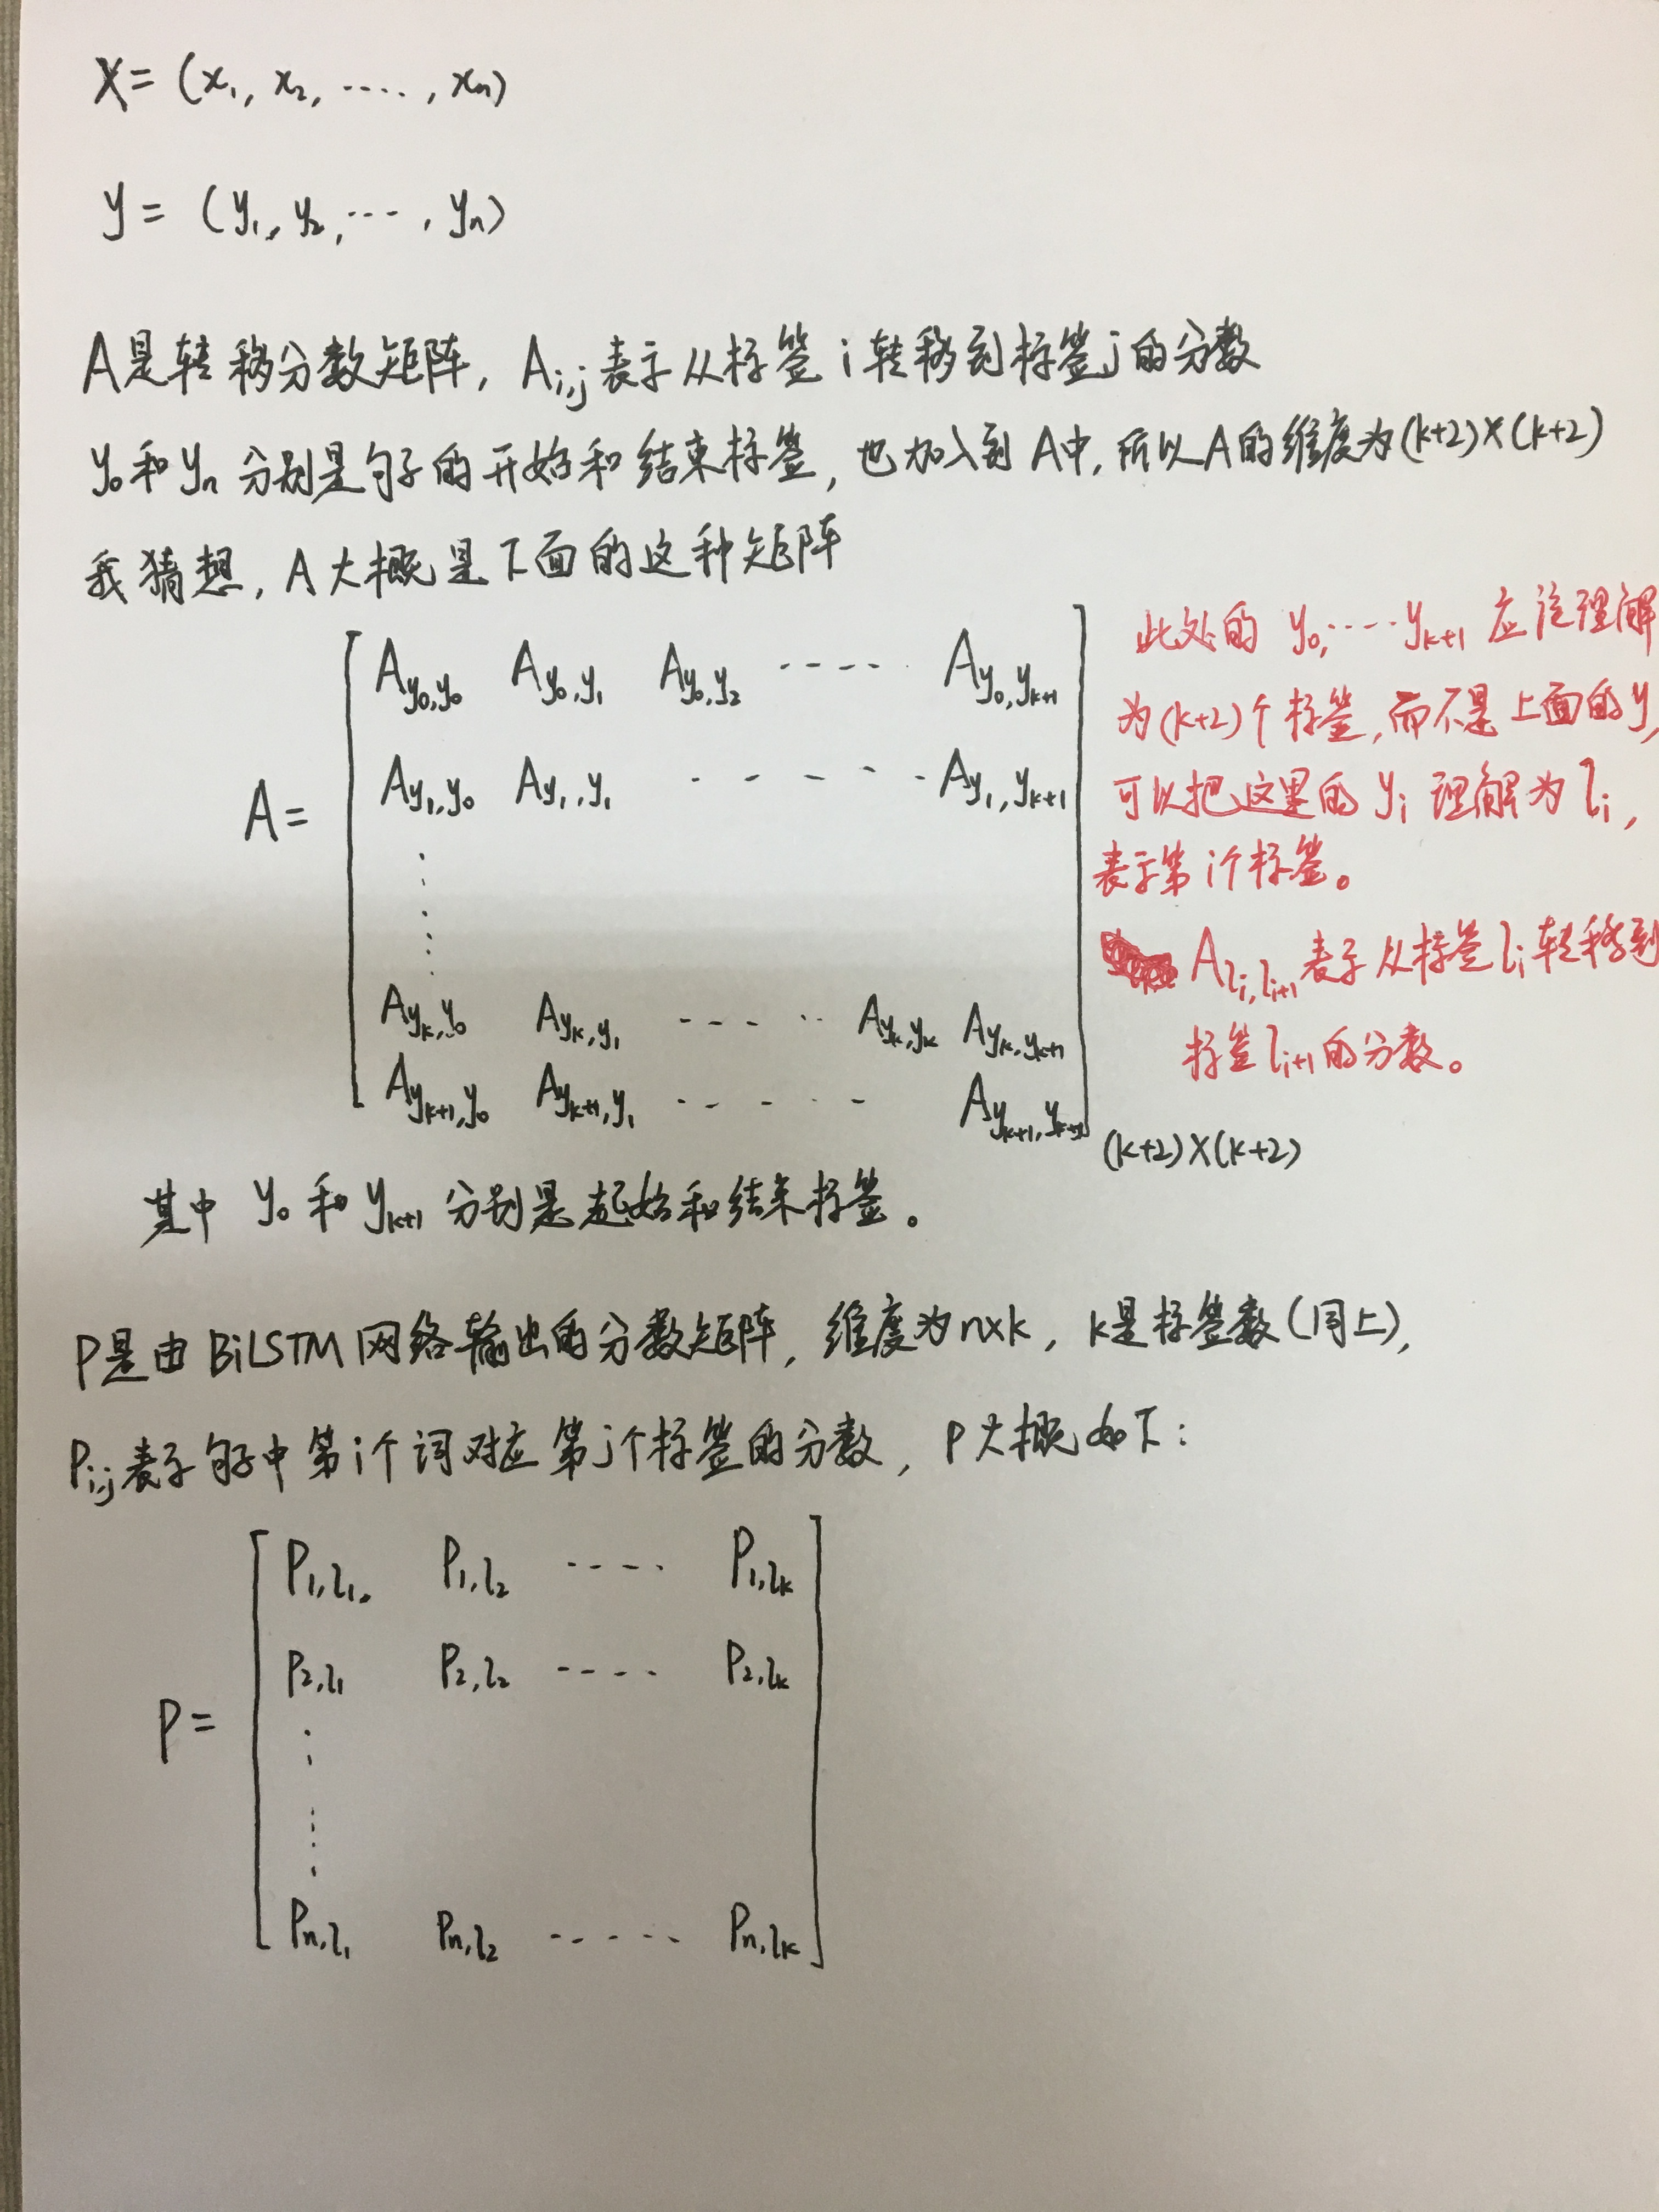 X = (x₁, x₂, ....., xₙ)
y = (y₁, y₂, ..., yₙ)
A是转移分数矩阵, Aᵢ,ⱼ表示从标签i转移到标签j的分数
y₀和yₙ分别是句子的开始和结束标签, 也加入到A中, 所以A的维度为(k+2)×(k+2)
我猜想, A大概是下面的这种矩阵
A =
A_{y₀,y₀} A_{y₀,y₁} A_{y₀,y₂} ..... A_{y₀,y_{k+1}}
A_{y₁,y₀} A_{y₁,y₁} ...... A_{y₁,y_{k+1}}
A_{y_k,y₀} A_{y_k,y₁} ..... A_{y_k,y_k} A_{y_k,y_{k+1}}
A_{y_{k+1},y₀} A_{y_{k+1},y₁} ..... A_{y_{k+1},y_{k+1}}
(k+2)×(k+2)
此处的 y₀,....y_{k+1} 应该理解
为(k+2)个标签, 而不是上面的y,
可以把这里的 yᵢ 理解为 lᵢ,
表示第i个标签。
A_{lᵢ,lᵢ₊₁}表示从标签lᵢ转移到
标签lᵢ₊₁的分数。
其中 y₀ 和 y_{k+1} 分别是起始和结束标签。
P是由BiLSTM网络输出的分数矩阵, 维度为n×k, k是标签数(同上),
Pᵢ,ⱼ表示句子中第i个词对应第j个标签的分数, P大概如下:
P =
P_{1,l₁} P_{1,l₂} .... P_{1,l_k}
P_{2,l₁} P_{2,l₂} .... P_{2,l_k}
P_{n,l₁} P_{n,l₂} ...... P_{n,l_k}